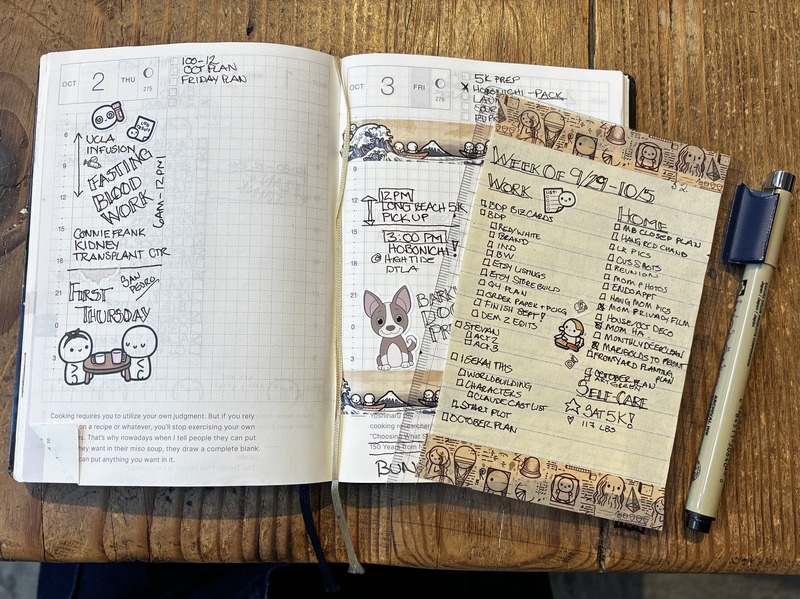 OCT 2 THU
275
100-12
OCT PLAN
FRIDAY PLAN
6
9
12
15
18
21
0
3
UCLA
INFUSION
FASTING
BLOOD
WORK
6AM-12PM
CONNIE FRANK
KIDNEY
TRANSPLANT CTR
FIRST
THURSDAY
SAN
PEDRO
Cooking requires you to utilize your own judgment. But if you rely
on a recipe or whatever, you'll stop exercising your own
That's why nowadays when I tell people they can put
they want in their miso soup, they draw a complete blank.
can put anything you want in it.
OCT 3 FRI
276
5K PREP
X HOBONICHI - PACK
12PM
LONG BEACH 5K
PICK UP
3:00 PM
HOBONICHI!
@ HIGHTIDE
DTLA
cooking researcher
"Choosing What
150 Years from
WEEK OF 9/29-10/5
WORK
BDP BIZ CARDS
BDP
RED/WHITE
BRAND
IND
BW
ETSY LISTINGS
ETSY STORE BUILD
Q4 PLAN
ORDER PAPER + PCKG
FINISH SEPT!
DEM 2 EDITS
STEVAN
ACT 2
ACT 3
ISEKAI THIS
WORLDBUILDING
CHARACTERS
CLAUDE CAST LIST
START PLOT
OCTOBER PLAN
HOME
MB CLOSED PLAN
HANG RED CHAND
LR PICS
REUNION
MOM PHOTOS
ENDO APPT
HANG MOM PICS
MOM PRIVACY FILM
HOUSE OCT DECO
MOM HA
MONTHLY DEEP CLEAN
MARIGOLDS TO FRONT
FRONTYARD PLANTING
PLAN
OCTOBER PLAN
SELF-CARE
SAT 5K!
117 LBS